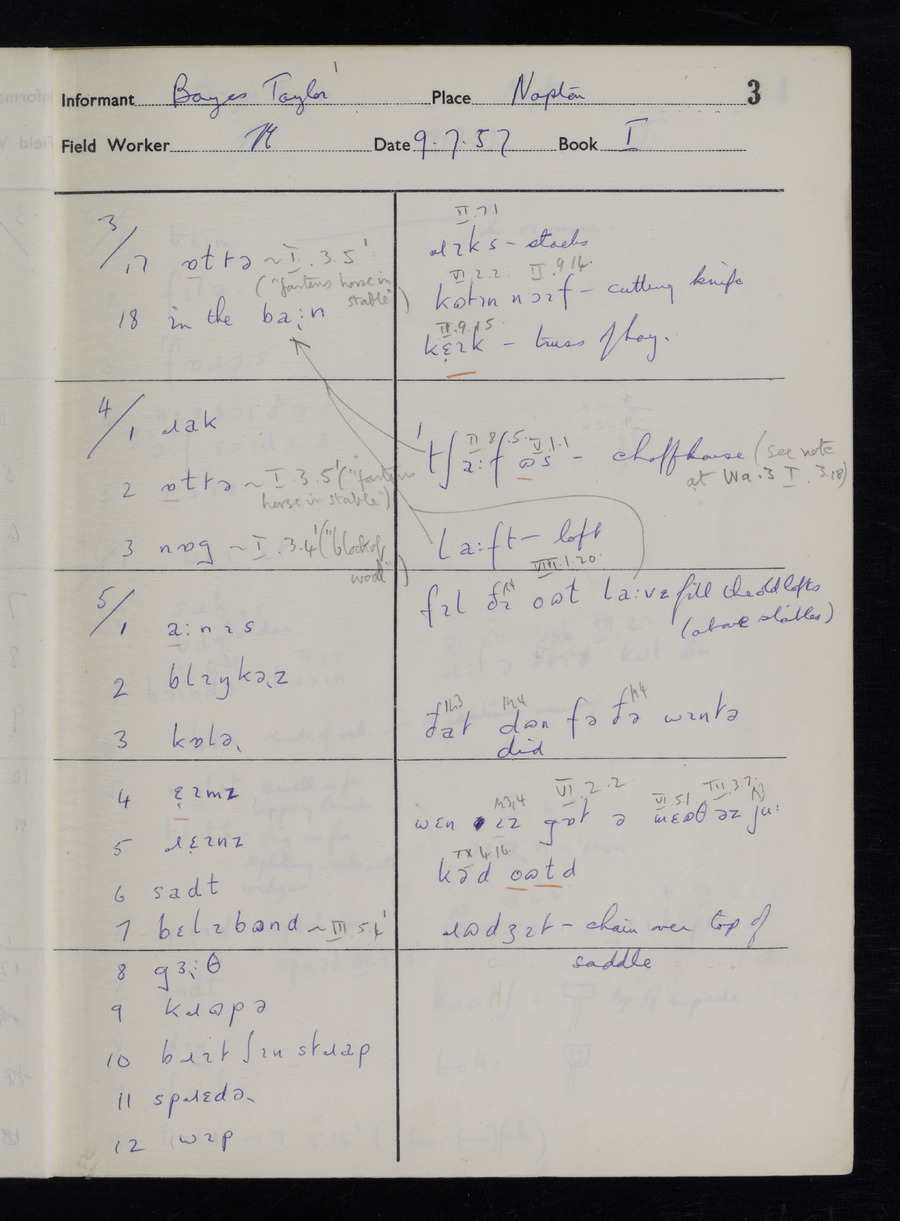 Informant Bayes Taylor Place Napton 3
Field Worker Date 9.7.57 Book I
3/17 ɒtɫə ~ I.3.5'
("fastens horse in stable")
18 in the ba:n
4/1 ɹak
2 ɒtɫə ~ I.3.5' ("fastens horse in stable")
3 nɒg ~ I.3.4' ("block of wood")
5/1 a:nɪs
2 blɪŋkəɹz
3 kɒləɹ
4 ɛɪmz
5 ɹɛɪnz
6 sadɫ
7 bɛlɪband ~ III.5.4'
8 gɜ:θ
9 kɹɷpə
10 bɹɪtʃɪn stɹap
11 spɹɛdəɹ
12 wɪp
II.7.1
ɹɪks - stacks
VI.2.2 II.9.14
kɷtɪn nɔɪf - cutting knife
II.9.15
kɛɪk - truss of hay.
II.8.5. V.1.1
tʃa:f ɷs - chaffhouse (see note at Wa.3 I.3.18)
la:ft - loft
VIII.1.20
fɪl ðɪ oɷɫ la:vz fill the old lofts
(above stables)
ðat dɷn fə ðə wɪntə
did
VI.2.2 VI.5.1
wɛn gɒt ə mɛɷθ əz ju:
IX.4.16
kəd oɷɫd
ɹɷdʒɪt - chain over top of
saddle